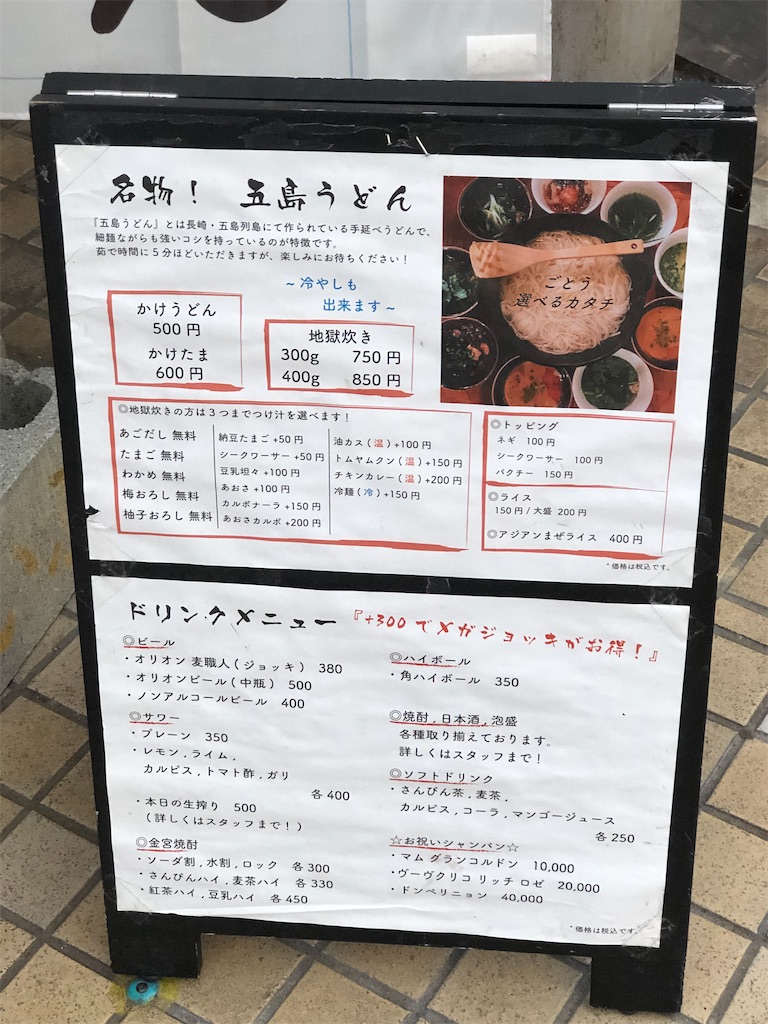 名物! 五島うどん
『五島うどん』とは長崎・五島列島にて作られている手延べうどんで、
細麺ながらも強いコシを持っているのが特徴です。
茹で時間に5分ほどいただきますが、楽しみにお待ちください!
~冷やしも
出来ます~
かけうどん
500円
かけたま
600円
地獄炊き
300g 750円
400g 850円
ごとう
選べるカタチ
◎地獄炊きの方は3つまでつけ汁を選べます!
あごだし 無料
たまご 無料
わかめ 無料
梅おろし 無料
柚子おろし 無料
納豆たまご +50円
シークワーサー +50円
豆乳坦々 +100円
あおさ +100円
カルボナーラ +150円
あおさカルボ +200円
油カス(温)+100円
トムヤムクン(温)+150円
チキンカレー(温)+200円
冷麺(冷)+150円
◎トッピング
ネギ 100円
シークワーサー 100円
パクチー 150円
◎ライス
150円/大盛 200円
◎アジアンまぜライス 400円
*価格は税込です。
ドリンクメニュー『+300でメガジョッキがお得!』
◎ビール
・オリオン 麦職人(ジョッキ) 380
・オリオンビール(中瓶) 500
・ノンアルコールビール 400
◎サワー
・プレーン 350
・レモン,ライム,
カルピス,トマト酢,ガリ
各400
・本日の生搾り 500
(詳しくはスタッフまで!)
◎金宮焼酎
・ソーダ割,水割,ロック 各300
・さんぴんハイ,麦茶ハイ 各330
・紅茶ハイ,豆乳ハイ 各450
◎ハイボール
・角ハイボール 350
◎焼酎,日本酒,泡盛
各種取り揃えております。
詳しくはスタッフまで!
◎ソフトドリンク
・さんぴん茶,麦茶,
カルピス,コーラ,マンゴージュース
各250
☆お祝いシャンパン☆
・マム グランコルドン 10,000
・ヴーヴクリコ リッチ ロゼ 20,000
・ドンペリニョン 40,000
*価格は税込です。